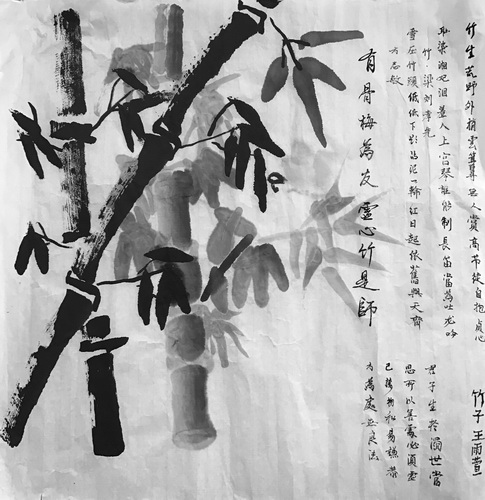 竹生荒野外梢雲聳尋無人賞高节徒自抱貞心
恥染湘妃泪羞入上宫琴誰能制長笛當為吐龙吟
竹·梁刘孝先
雪压竹頭低低下欲沾泥一輪红日起依舊與天齊
方志敏
有骨梅為友虛心竹是師
君子生於濁世當
思所以善處必須虛
己接物和易謙恭
為處世良法
竹子王雨萱